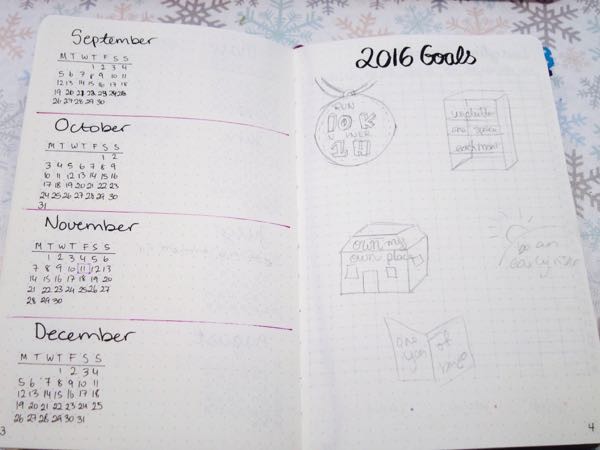 September
M T W T F S S
1 2 3 4
5 6 7 8 9 10 11
12 13 14 15 16 17 18
19 20 21 22 23 24 25
26 27 28 29 30
October
M T W T F S S
1 2
3 4 5 6 7 8 9
10 11 12 13 14 15 16
17 18 19 20 21 22 23
24 25 26 27 28 29 30
31
November
M T W T F S S
1 2 3 4 5 6
7 8 9 10 11 12 13
14 15 16 17 18 19 20
21 22 23 24 25 26 27
28 29 30
December
M T W T F S S
1 2 3 4
5 6 7 8 9 10 11
12 13 14 15 16 17 18
19 20 21 22 23 24 25
26 27 28 29 30 31
3
2016 Goals
RUN
10K
UNDER
1H
unclutter
one space
each month
own my
own place
be an
early riser
one
year
of
4